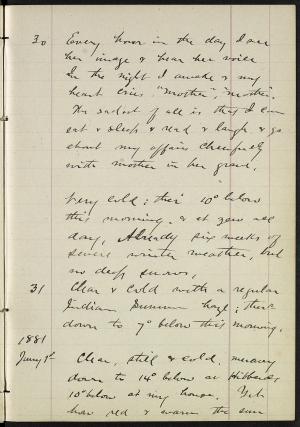 30 Every hour in the day I see
her image & hear her voice
In the night I awake & my
heart cries, "mother", "mother".
The saddest of all is that I can
eat & sleep & read & laugh & go
about my affairs cheerfully
with mother in her grave.
Very cold; ther. 10° below
this morning & at zero all
day, Already six weeks of
severe winter weather, but
no deep snows,
31 Clear & cold with a regular
Indian Summer haze; ther.
down to 7° below this morning.
1881
Jany 1st Clear, still & cold. mercury
down to 14° below at Hibbards
10° below at my house. Yet
how red & warm the sun